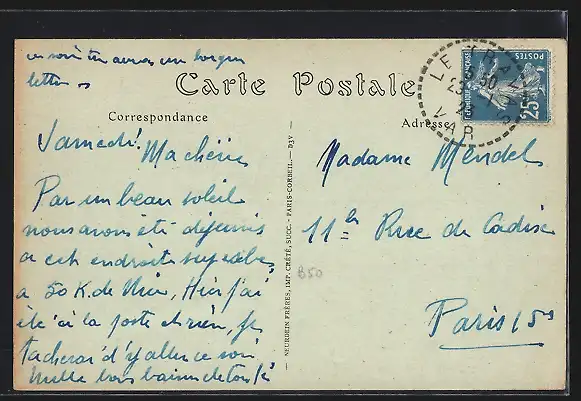 ce soir tu auras un longue
lettre
Carte Postale
Correspondance
Adresse
LE TRAYAS
VAR
POSTES
REPUBLIQUE FRANÇAISE
25c
Samedi
Ma chérie
Par un beau soleil
nous avons été déjeuner
a cet endroit superbe,
a 50 K. de Nice, Hier j'ai
été à la poste et rien, je
tacherai d'y aller ce soir
Mille bons baisers de tous
Madame Mendel
11 bis Rue de Cadix
Paris 15e
NEURDEIN FRÈRES, IMP. CRÉTÉ, SUCC. - PARIS-CORBEIL. - D3V
B50